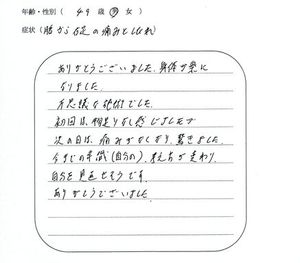 年齢・性別( 49 歳 男 女 )
症状(腰から足の痛みとしびれ)
ありがとうございました。身体が楽に
なりました。
不思議な施術でした。
初回は、物足りなく感じましたが
次の日は、痛みがなくなり、驚きました。
今までの常識(自分の)、考え方が変わり、
自分を見直せそうです。
ありがとうございました